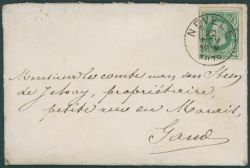 Monsieur le comte van der Stegen
de                , propriétaire,
petite rue du Marais,
Gand